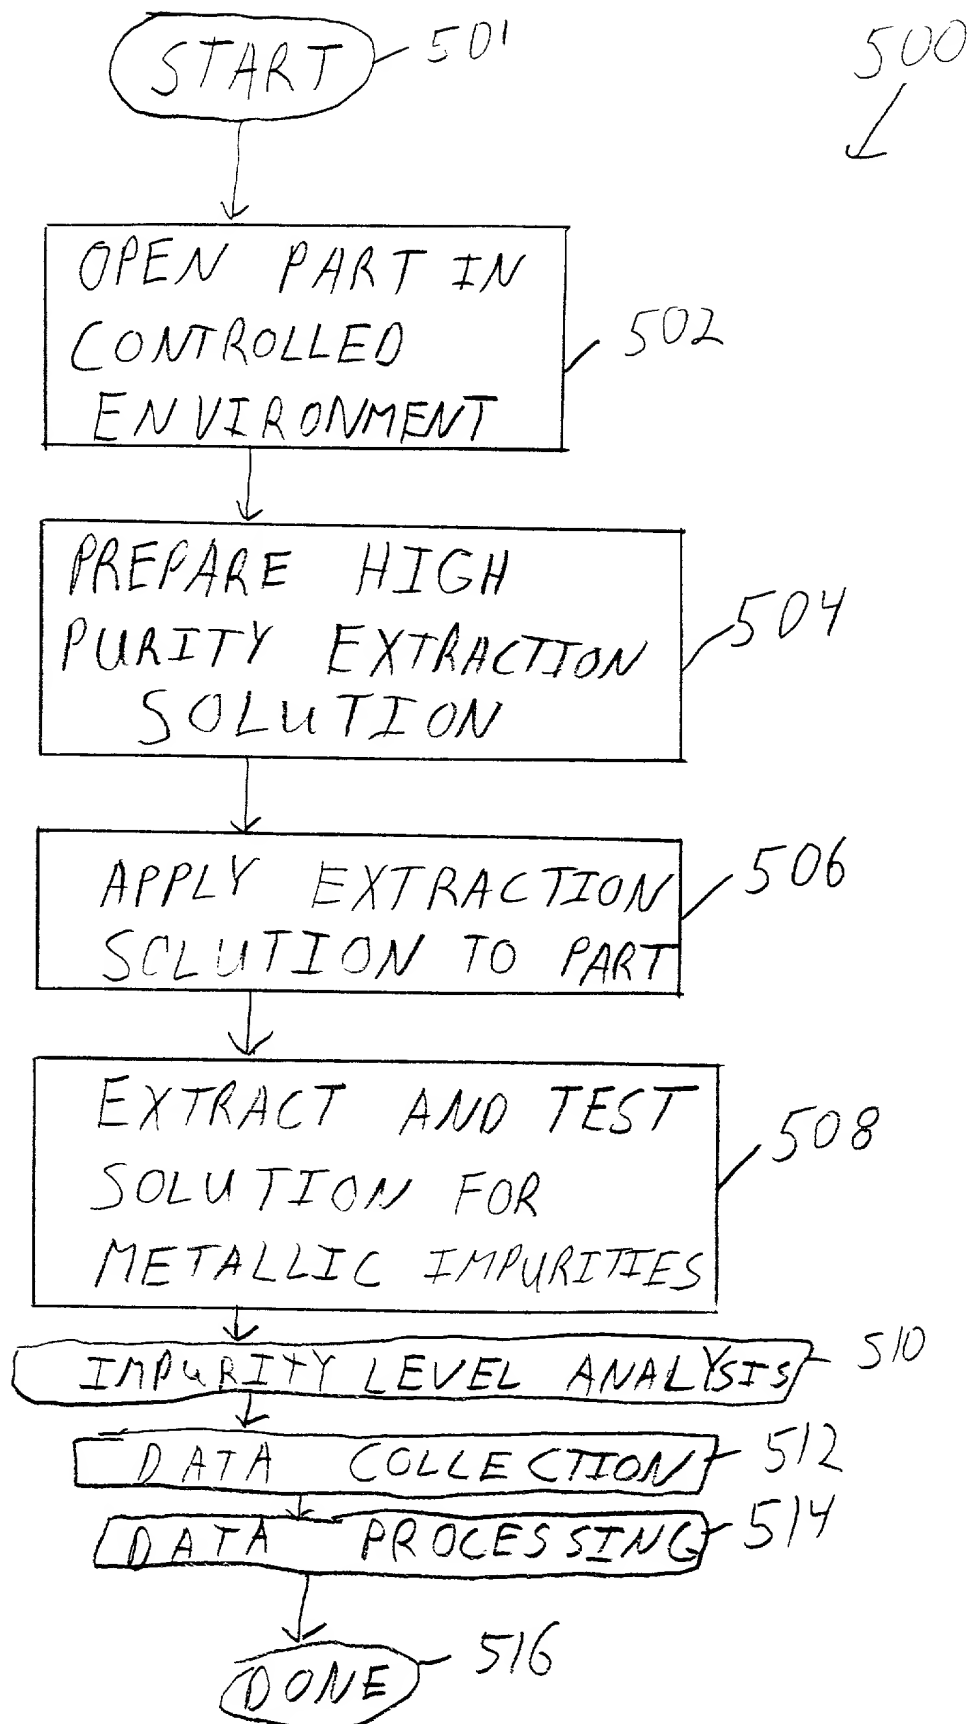 START 501
500
OPEN PART IN
CONTROLLED
ENVIRONMENT
502
PREPARE HIGH
PURITY EXTRACTION
SOLUTION
504
APPLY EXTRACTION
SOLUTION TO PART
506
EXTRACT AND TEST
SOLUTION FOR
METALLIC IMPURITIES
508
IMPURITY LEVEL ANALYSIS 510
DATA COLLECTION 512
DATA PROCESSING 514
DONE 516